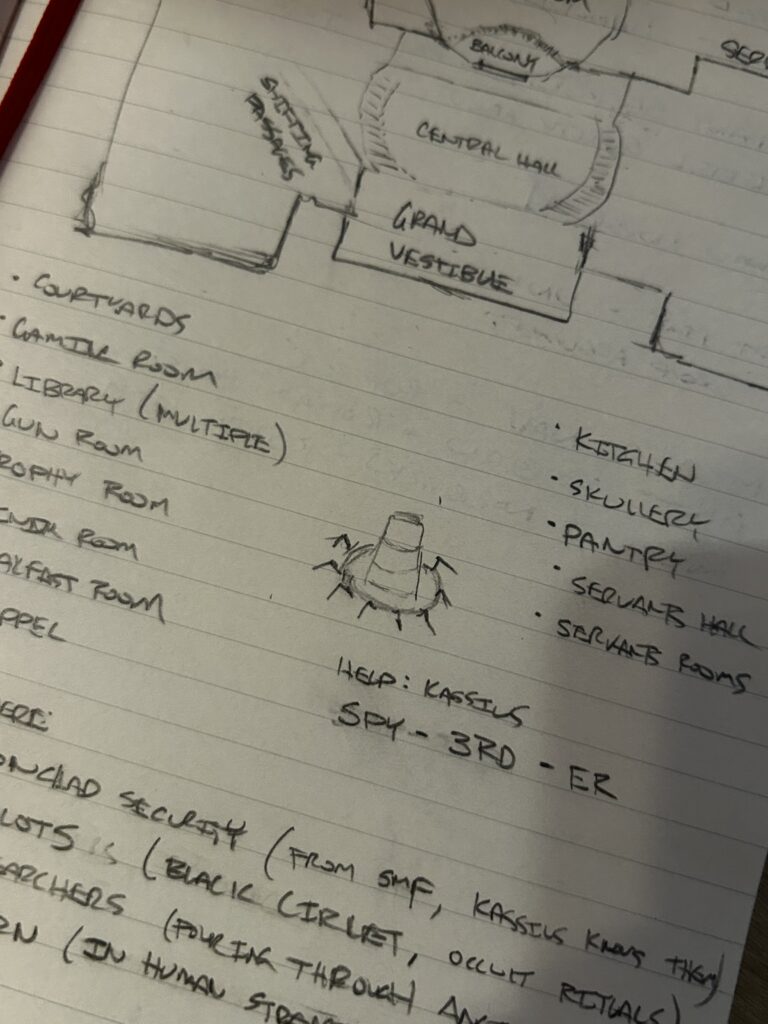 BALCONY
SHIFTING
PASSAGES
CENTRAL HALL
GRAND
VESTIBLE
• COURTYARDS
• GAMING ROOM
• LIBRARY (MULTIPLE)
GUN ROOM
ROPHY ROOM
ROOM
ROOM
PPEL
• KITCHEN
• SKULLERY
• PANTRY
• SERVANTS HALL
• SERVANTS ROOMS
HELP: KASSIUS
SPY - 3RD - ER
ERE:
ONCLAD SECURITY (FROM SMF, KASSIUS KNOWS THEM)
LOTS (BLACK CIRCLET, OCCULT RITUALS)
EARCHERS (POURING THROUGH
RN (IN HUMAN